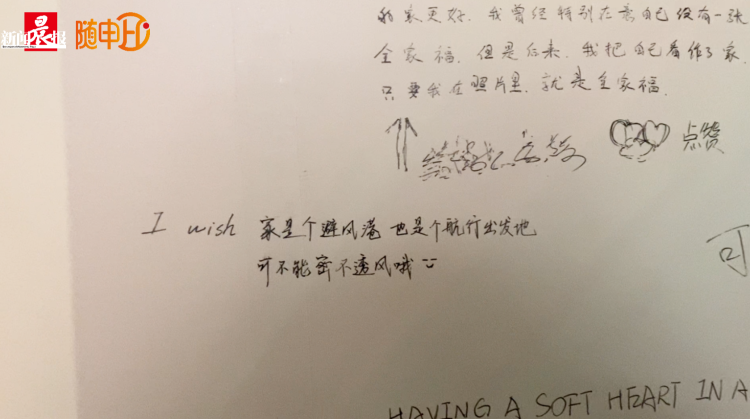 新闻晨报 随申Hi
的家更好.我曾经特别在意自己没有一张
全家福.但是后来.我把自己看作了家.
只要我在照片里.就是全家福.
点赞
I wish 家是个避风港 也是个航行出发地
可不能密不透风哦
可
HAVING A SOFT HEART IN A